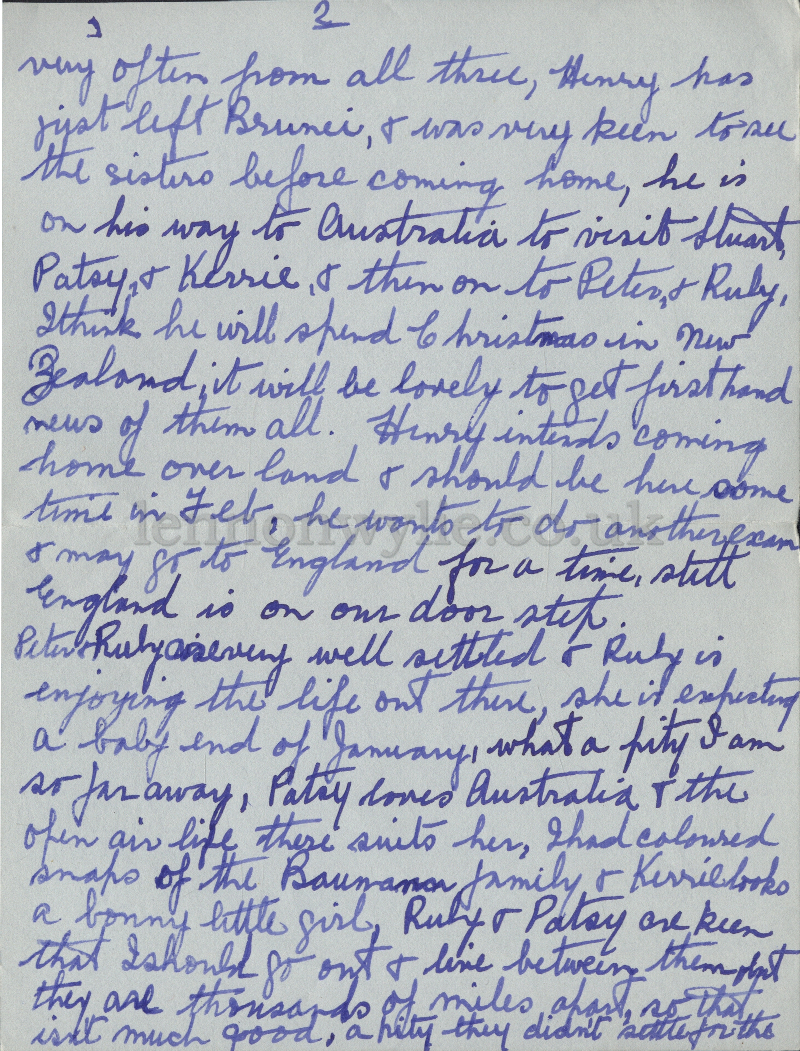 3
very often from all three, Henry has
just left Brunei, & was very keen to see
the sisters before coming home, he is
on his way to Australia to visit Stuart,
Patsy, & Kerrie, & then on to Peter, & Ruby,
I think he will spend Christmas in New
Zealand, it will be lovely to get first hand
news of them all. Henry intends coming
home over land & should be here some
time in Feb, he wants to do another exam
lennonwylie.co.uk
& may go to England for a time, still
England is on our door step.
Peter & Ruby are very well settled & Ruby is
enjoying the life out there, she is expecting
a baby end of January, what a pity I am
so far away, Patsy loves Australia & the
open air life there suits her, I had coloured
snaps of the Baumann family & Kerrie looks
a bonny little girl, Ruby & Patsy are keen
that I should go out & live between them, but
they are thousands of miles apart, so that
isn't much good, a pity they didn't settle for the